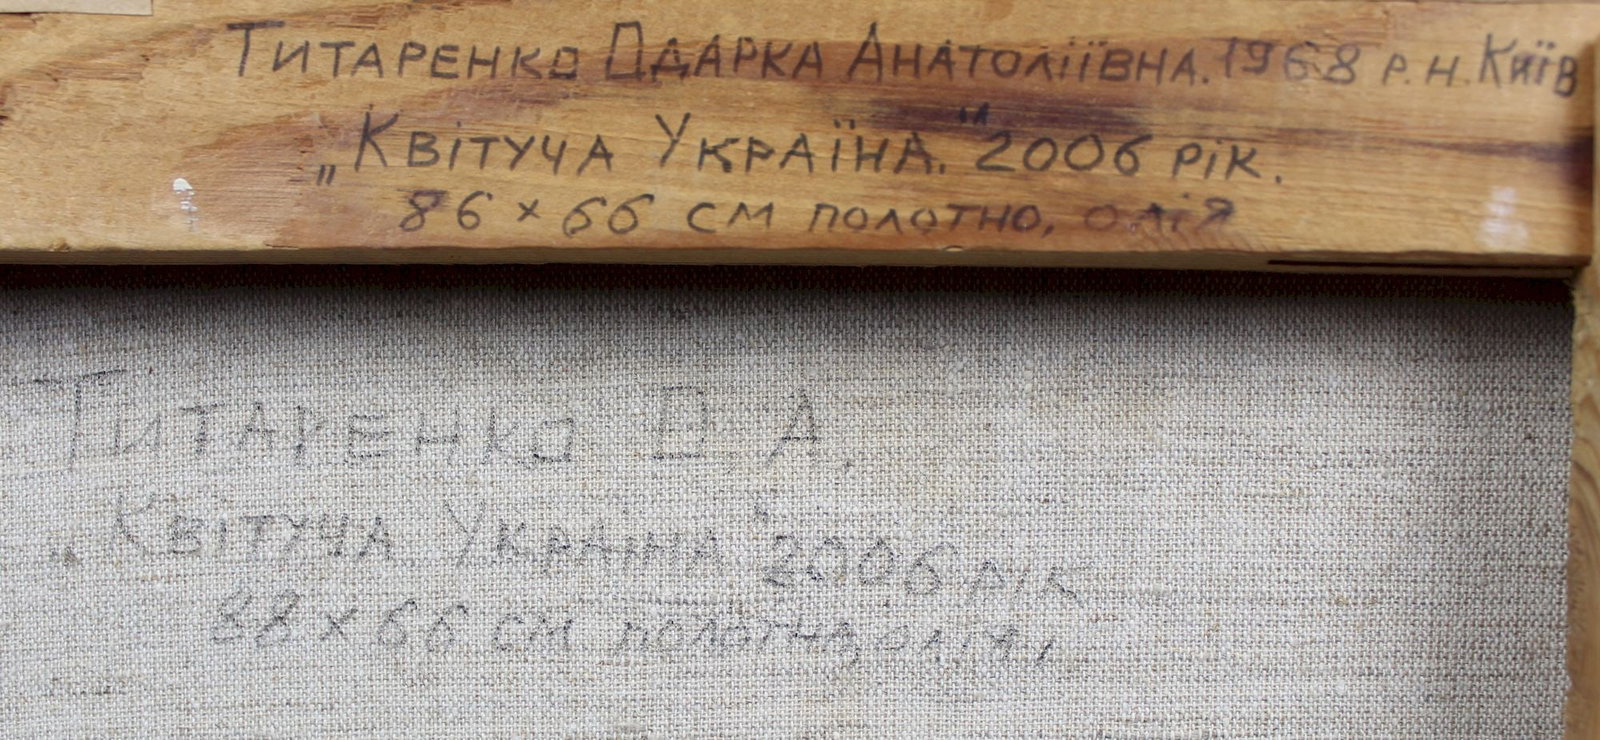 Титаренко Одарка Анатоліївна. 1968 р.н. Київ
„Квітуча Україна." 2006 рік.
86 × 66 см полотно, олія
Титаренко О. А.
„Квітуча Україна" 2006 рік
88 × 66 см полотно, олія,